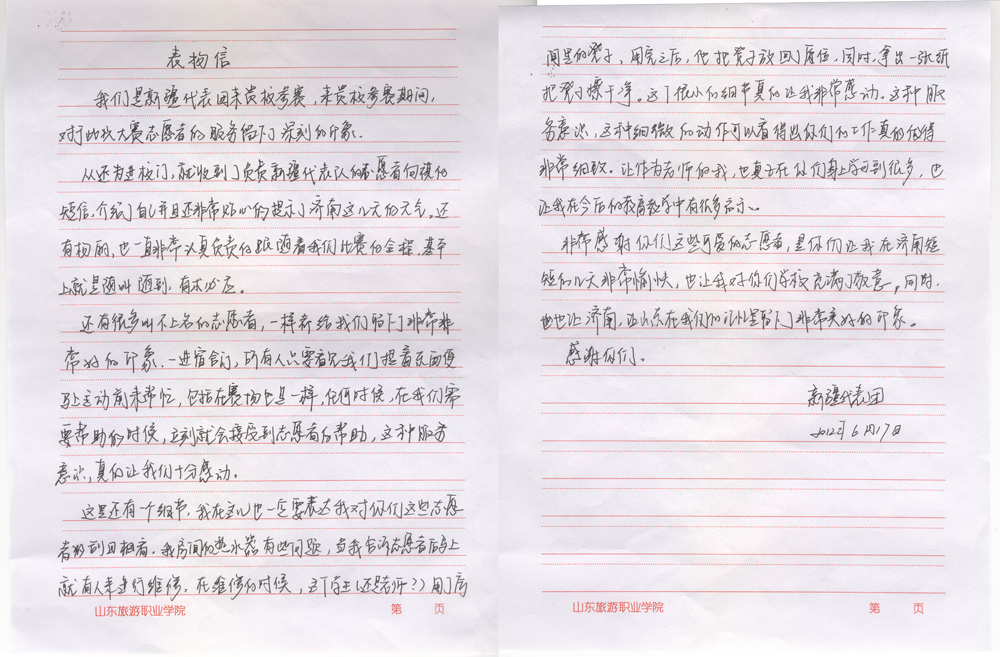 表扬信
我们是新疆代表团来贵校参赛，来贵校参赛期间，
对于此次大赛志愿者的服务给下深刻的印象。
从还未进校门，就收到了负责新疆代表队的志愿者何祺的
短信，介绍了自己并且还非常贴心的提示了济南这几天的天气。还
有杨丽，也一直非常认真负责的跟随着我们比赛的全程，基本
上就是随叫随到，有求必应。
还有很多叫不上名的志愿者，一样都给我们留下非常非
常好的印象。一进宿舍门，所有人只要看见我们提着东西便
马上主动前来帮忙，包括在赛场也是一样，任何时候，在我们需
要帮助的时候，立刻就会接受到志愿者的帮助，这种服务
意识，真的让我们十分感动。
这里还有一个细节，我在这儿也一定要表达我对你们这些志愿
者的刮目相看。我房间的热水器有些问题，当我告诉志愿者后马上
就有人来进行维修。在维修的时候，这个学生（还是老师？）用了房
间里的凳子，用完之后，他把凳子放回了原位，同时，拿出一张纸
把凳子擦干净。这个很小的细节真的让我非常感动。这种服
务意识，这种细微的动作可以看得出你们的工作真的做得
非常细致。让作为老师的我，也真正在你们身上学习到很多，也
让我在今后的教育教学中有很多启示。
非常感谢你们这些可爱的志愿者，是你们让我在济南短
短的几天非常愉快，也让我对你们学校充满了敬意，同时，
也让济南，让山东在我们的记忆里留下非常美好的印象。
感谢你们。
新疆代表团
2012年6月17日
山东旅游职业学院 第 页
山东旅游职业学院 第 页